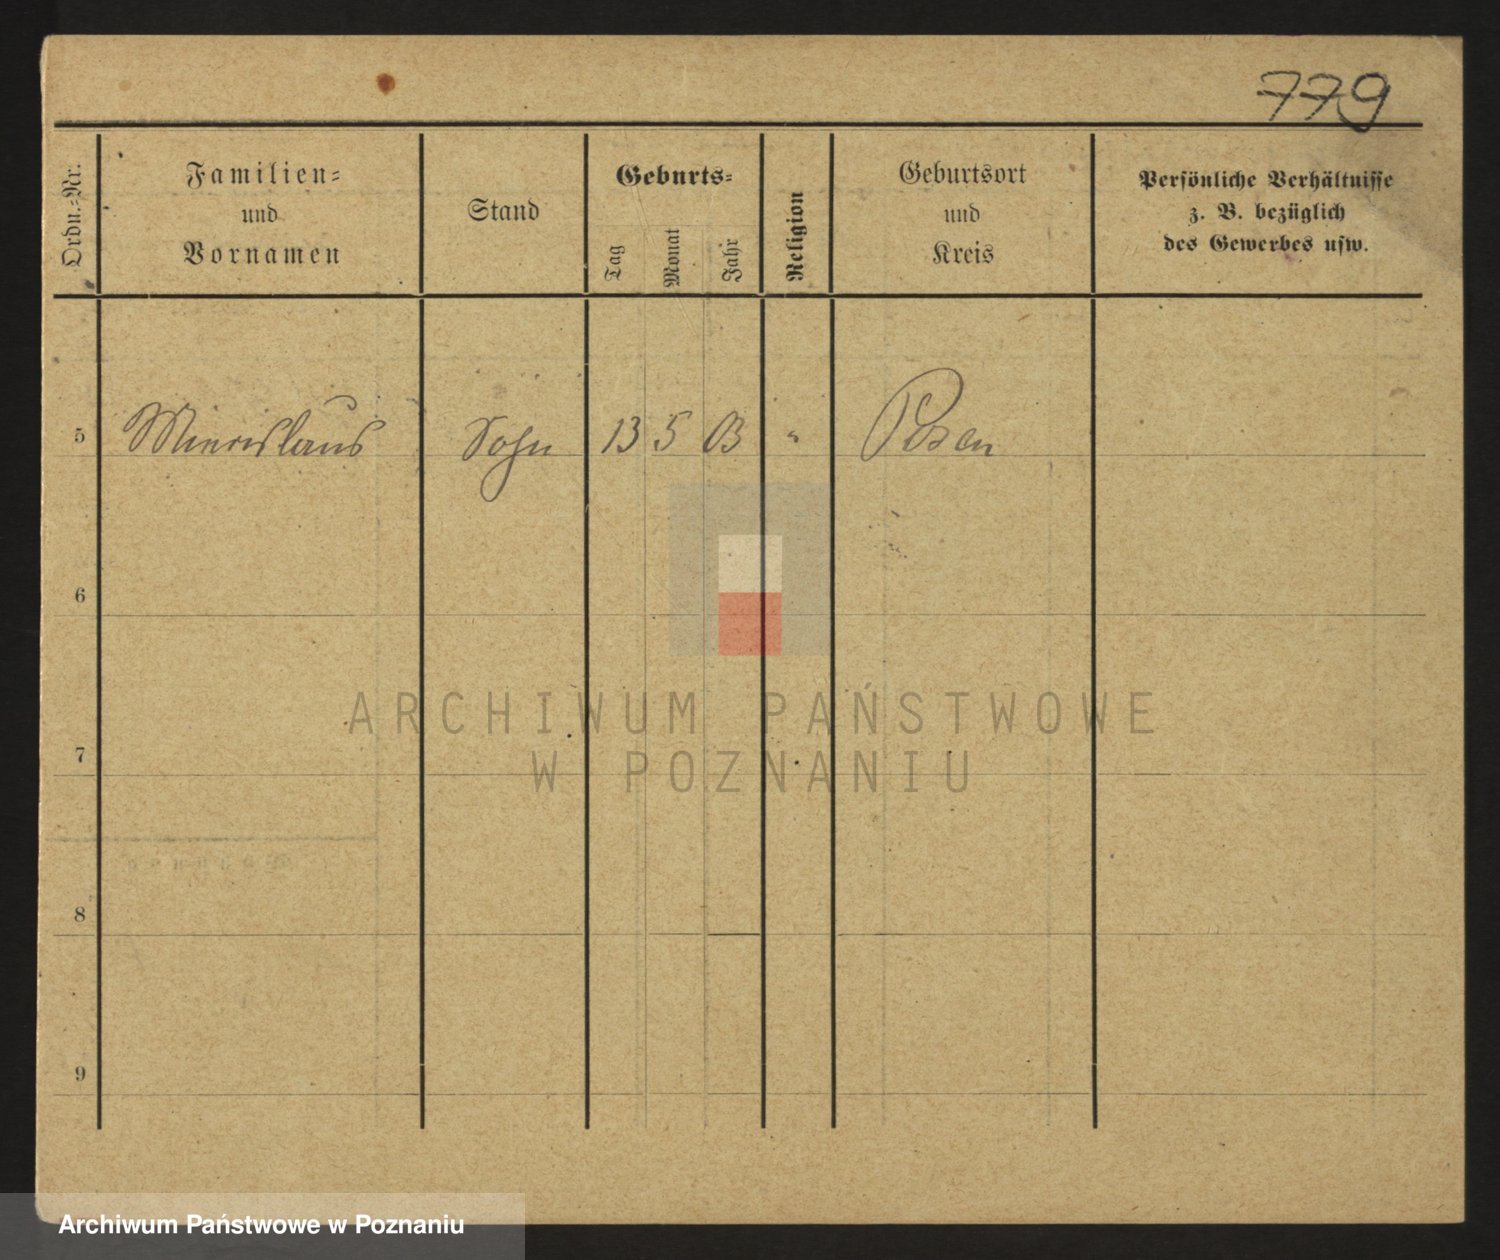 779
Ordn.-Nr.
Familien-
und
Vornamen
Stand
Geburts-
Tag
Monat
Jahr
Religion
Geburtsort
und
Kreis
Persönliche Verhältnisse
z. B. bezüglich
des Gewerbes usw.
5 Miecislaus Sohn 13 5 13 " Posen
6
ARCHIWUM PAŃSTWOWE
W POZNANIU
7
8
9
Archiwum Państwowe w Poznaniu